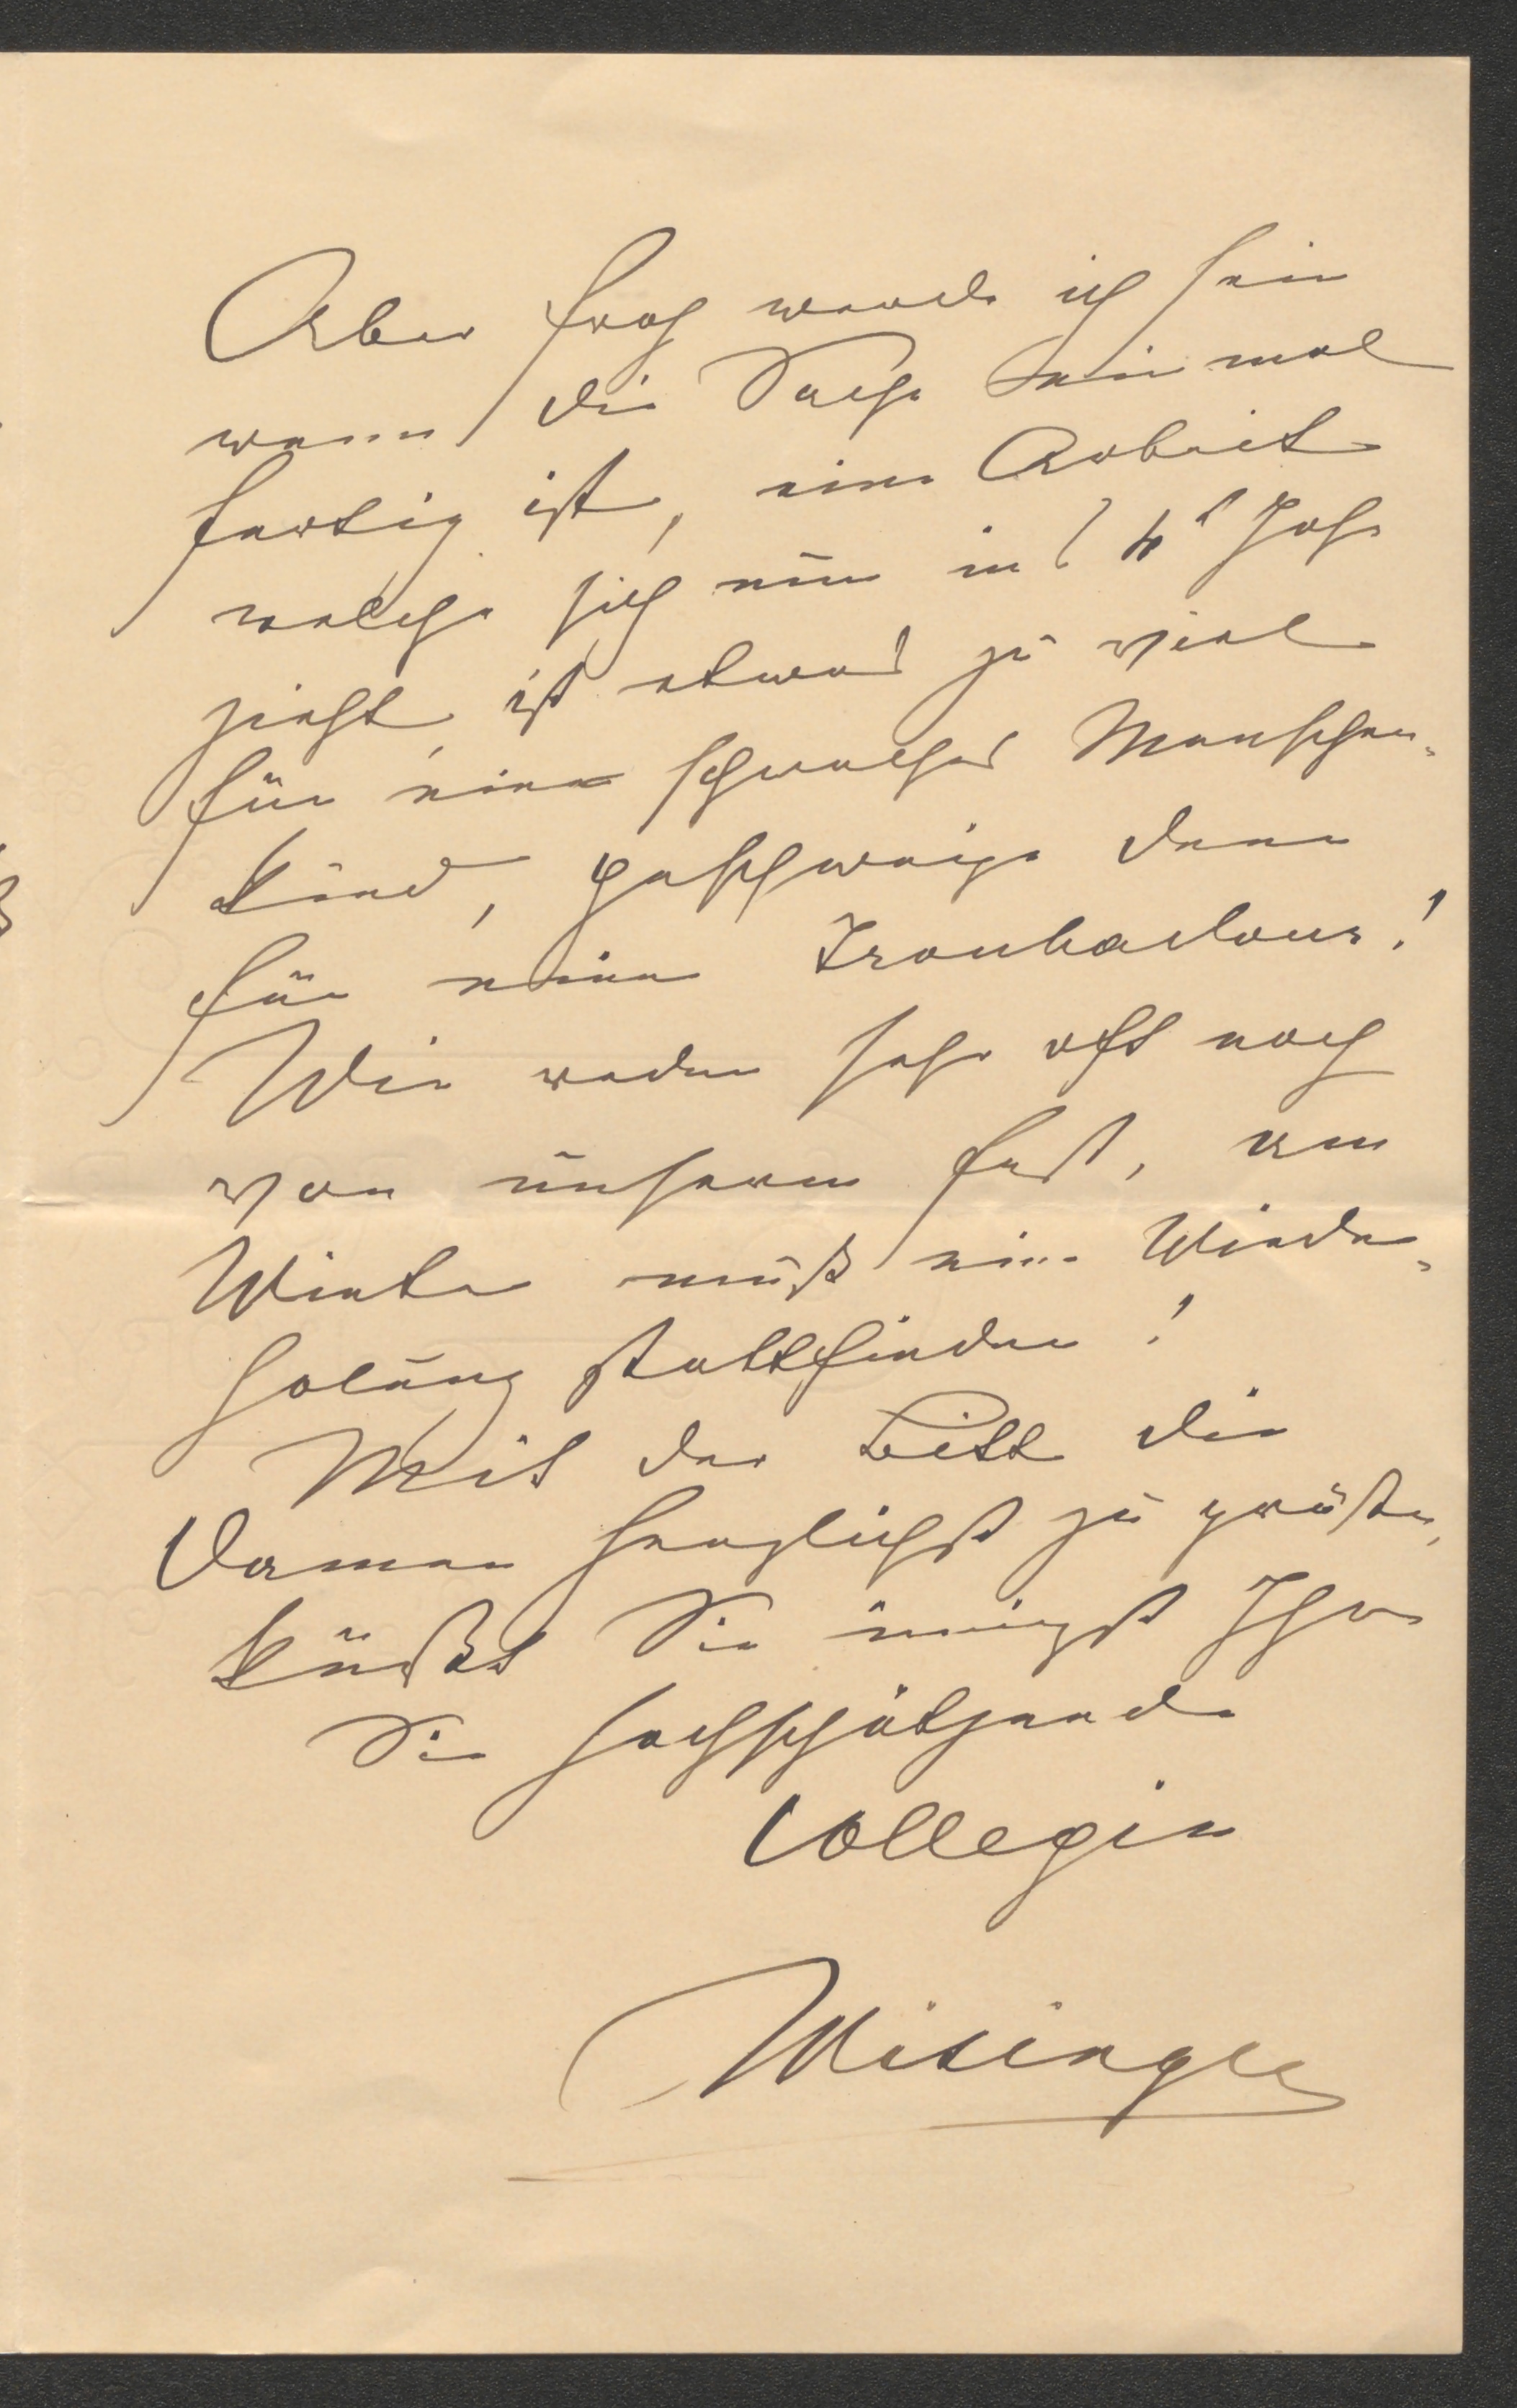 Aber froh werde ich sein
wenn die Sache einmal
fertig ist, eine Arbeit
welche sich nun in's 4t Jahr
zieht, ist etwas zu viel
für eine schwaches Menschen-
kind, geschweige denn
für einen Troubadour!
Wir reden sehr oft noch
von unserm Fest, am
Winter muß eine Wieder-
holung stattfinden!
Mit der Bitte die
Damen herzlichst zu grüßen,
küßt Sie innigst Ihre
Sie hochschätzende
Collegin
Wisinger